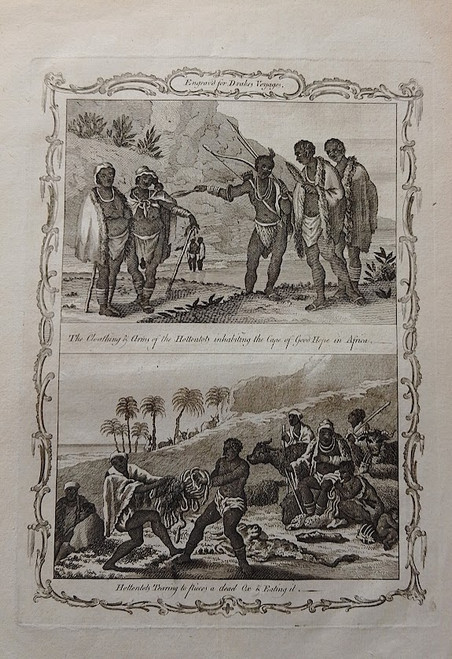 Engrav'd for Drake's Voyages.
The Cloathing & Arms of the Hottentots inhabiting the Cape of Good Hope in Africa.
Hottentots Tearing to pieces a dead Ox & Eating it.